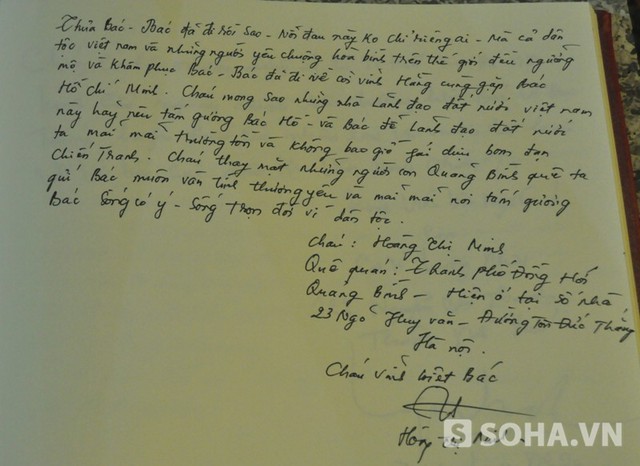 Thưa Bác - Bác đã đi rồi sao - Nỗi đau này ko chỉ riêng ai - mà cả dân
tộc việt nam và những người yêu chuộng hòa bình trên thế giới đều ngưỡng
mộ và khâm phục Bác - Bác đã đi về cõi vĩnh Hằng cùng gặp Bác
Hồ chí Minh. Cháu mong sao những nhà Lãnh đạo đất nước việt nam
này hãy nêu tấm gương Bác Hồ - và Bác để Lãnh đạo đất nước
ta mãi mãi trường tồn và không bao giờ bom đạn
chiến Tranh. Cháu thay mặt những người con Quảng Bình quê ta
gửi Bác muôn vàn tình thương yêu và mãi mãi noi tấm gương
Bác Sống có ý - Sống trọn đời vì dân tộc.
Cháu: Hoàng Thị Minh
Quê quán: Thành phố Đồng Hới
Quảng Bình - Hiện ở tại số nhà
23 Ngõ Huy văn - Đường Tôn Đức Thắng
Hà nội.
Cháu vĩnh biệt Bác
SOHA.VN